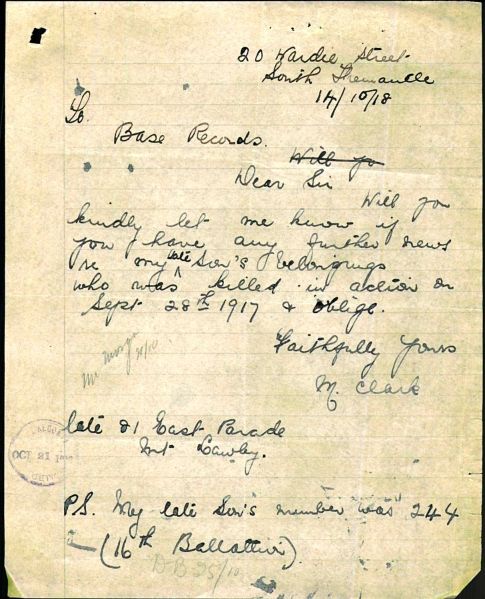 20 Wardie Street
South Fremantle
14/10/18
To.
Base Records.
Will yo
Dear Sir
Will you
kindly let me know if
you have any further news
re my late Son's belongings
who was killed in action on
Sept 28th 1917 & oblige.
Faithfully Yours
M. Clark
Mr
late 21 East Parade
Mt Lawley.
OCT 21
P.S. My late Son's number was 244
(16th Battallion)
25/10